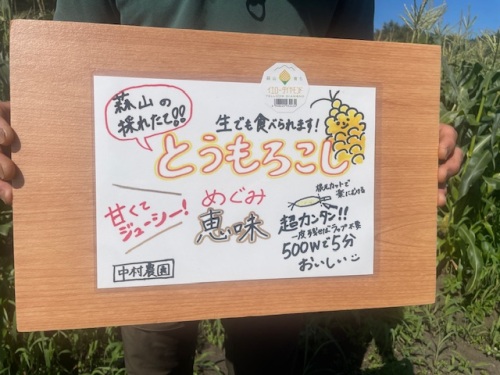 蒜山の
採れたて!!
生でも食べられます!
とうもろこし
甘くて
ジューシー!
めぐみ
恵味
根元カットで
楽にむける
超カンタン!!
一皮残せばラップ不要
500Wで5分
おいしい
中村農園